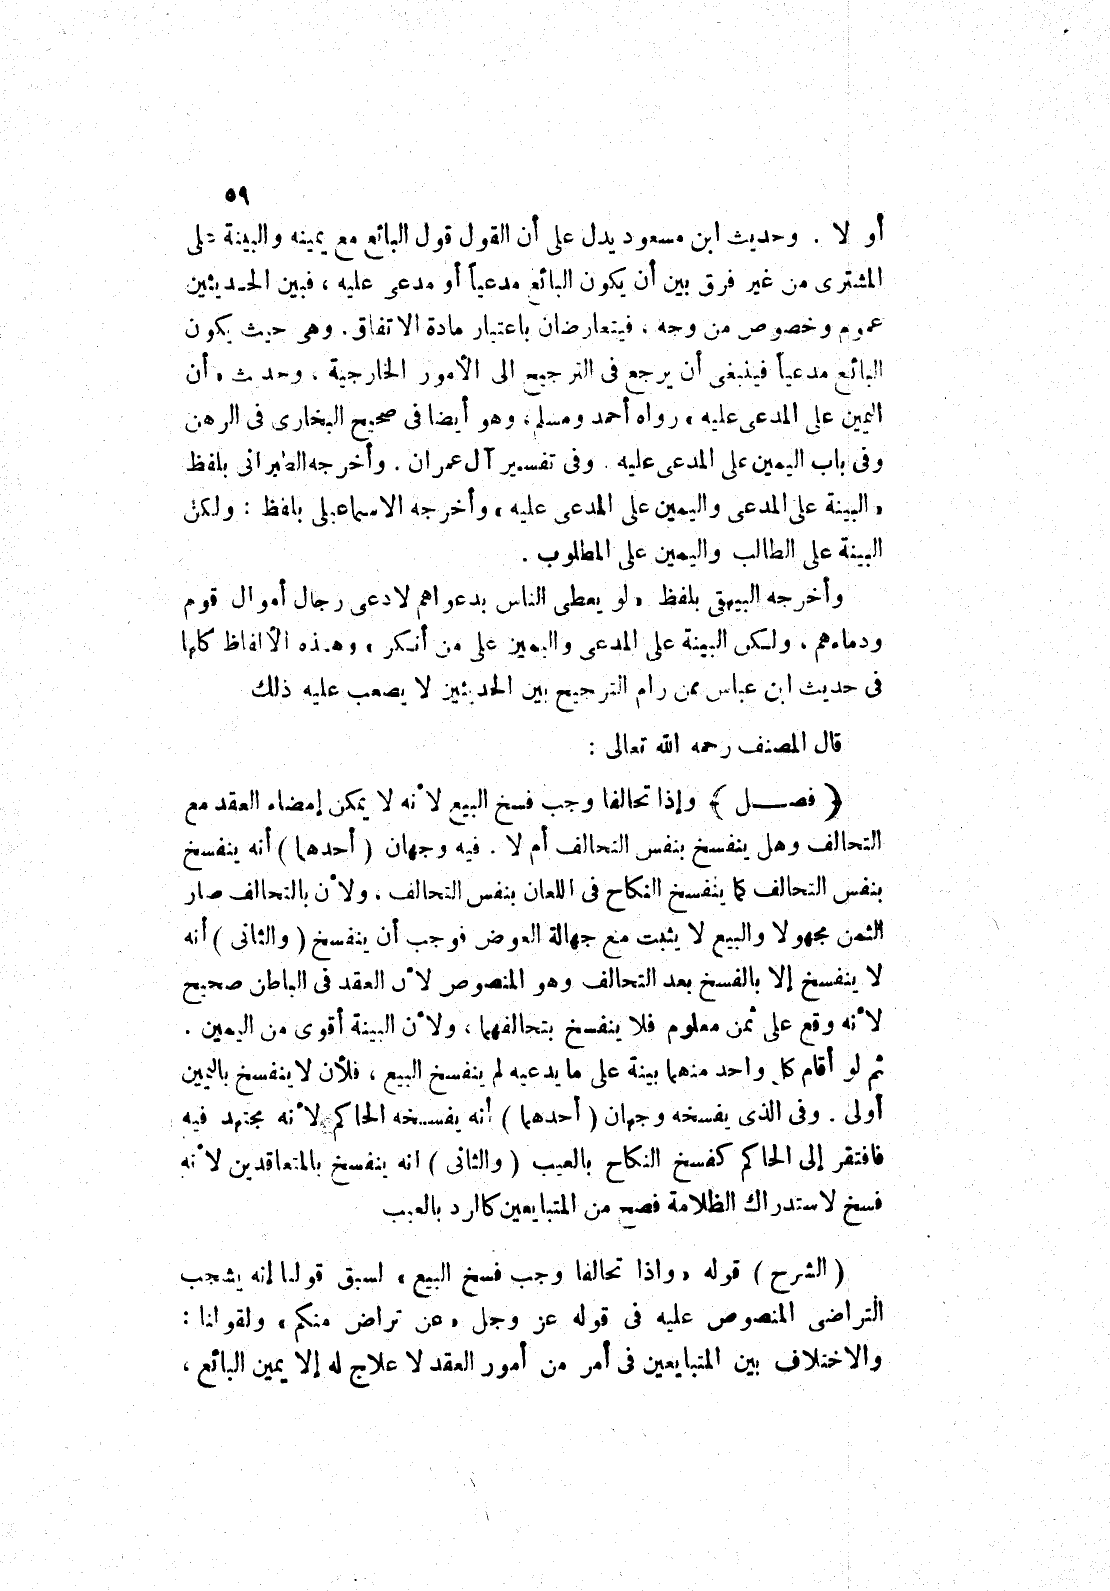 ٥٩
أو لا . وحديث ابن مسعود يدل على أن القول قول البائع مع يمينه والبينة على
المشترى من غير فرق بين أن يكون البائع مدعياً أو مدعى عليه ، فبين الحديثين
عموم وخصوص من وجه ، فيتعارضان باعتبار مادة الاتفاق . وهى حيث يكون
البائع مدعياً فينبغى أن يرجع فى الترجيح الى الأمور الخارجية ، وحديث « أن
اليمين على المدعى عليه » رواه أحمد ومسلم ، وهو أيضا فى صحيح البخارى فى الرهن
وفى باب اليمين على المدعى عليه . وفى تفسير آل عمران . وأخرجه الطبرانى بلفظ
« البينة على المدعى واليمين على المدعى عليه » وأخرجه الاسماعيلى بلفظ : ولكن
البينة على الطالب واليمين على المطلوب .
وأخرجه البيهقى بلفظ « لو يعطى الناس بدعواهم لادعى رجال أموال قوم
ودماءهم ، ولكن البينة على المدعى واليمين على من أنكر » وهذه الألفاظ كلها
فى حديث ابن عباس ممن رام الترجيح بين الحديثين لا يصعب عليه ذلك
قال المصنف رحمه الله تعالى :
﴿ فصــل ﴾ وإذا تحالفا وجب فسخ البيع لأنه لا يمكن إمضاء العقد مع
التحالف وهل ينفسخ بنفس التحالف أم لا . فيه وجهان ( أحدهما ) أنه ينفسخ
بنفس التحالف كما ينفسخ النكاح فى اللعان بنفس التحالف ، ولأن بالتحالف صار
الثمن مجهولا والبيع لا يثبت مع جهالة العوض فوجب أن ينفسخ ( والثانى ) أنه
لا ينفسخ إلا بالفسخ بعد التحالف وهو المنصوص لأن العقد فى الباطن صحيح
لأنه وقع على ثمن معلوم فلا ينفسخ بتحالفهما ، ولأن البينة أقوى من اليمين .
ثم لو أقام كل واحد منهما بينة على ما يدعيه لم ينفسخ البيع ، فلأن لا ينفسخ باليمين
أولى . وفى الذى يفسخه وجهان ( أحدهما ) أنه يفسخه الحاكم لأنه مجتهد فيه
فافتقر إلى الحاكم كفسخ النكاح بالعيب ( والثانى ) انه ينفسخ بالمتعاقدين لأنه
فسخ لاستدراك الظلامة فصح من المتبايعين كالرد بالعيب
( الشرح ) قوله « واذا تحالفا وجب فسخ البيع » لسبق قولنا إنه يشجب
التراضى المنصوص عليه فى قوله عز وجل « عن تراض منكم » ولقولنا :
والاختلاف بين المتبايعين فى أمر من أمور العقد لا علاج له إلا يمين البائع ،